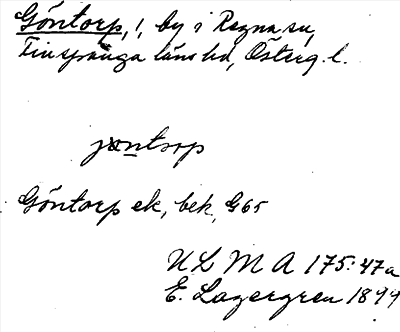 Göntorp, 1, by i Regna sn,
Finspånga läns hd, Österg. l.
jöntorp
Göntorp ek, bek, G65
ULMA 175:47a
E. Lagergren 1899